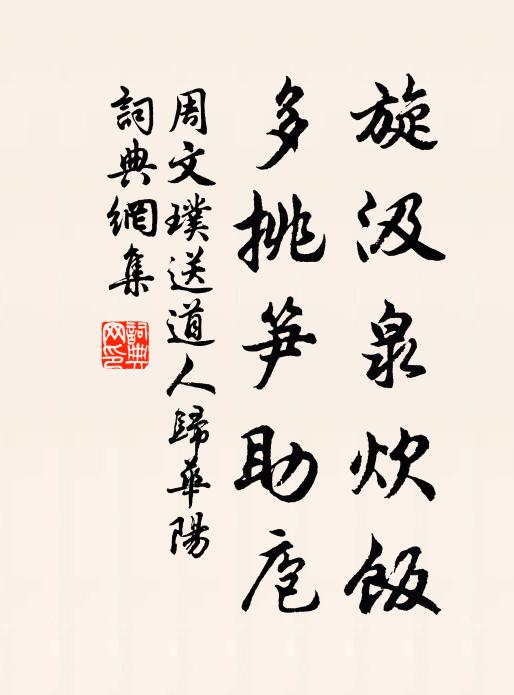 旋汲泉炊飯
多挑笋助庖
周文璞送道人歸華陽
詞典網集
詞典网印